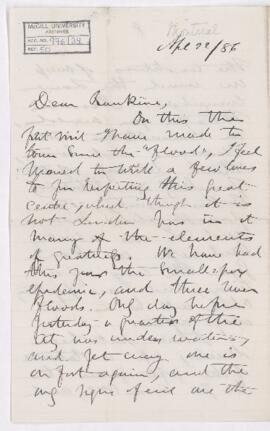 McGILL UNIVERSITY
ARCHIVES
ACC. NO. 976/34
REF. 50
Montreal
Apl 22/86
Dear Rankine,
On this the
first visit I have made to
town since the "floods", I feel
moved to write a few lines
to you respecting this great
centre, which though it is
not London has in it
many of the elements
of greatness. We have had
this year the Small-pox
epidemic, and three
floods. Only day before
yesterday a quarter of the
city was under water,
and yet every one is
on foot again, and the
only signs of evil are the